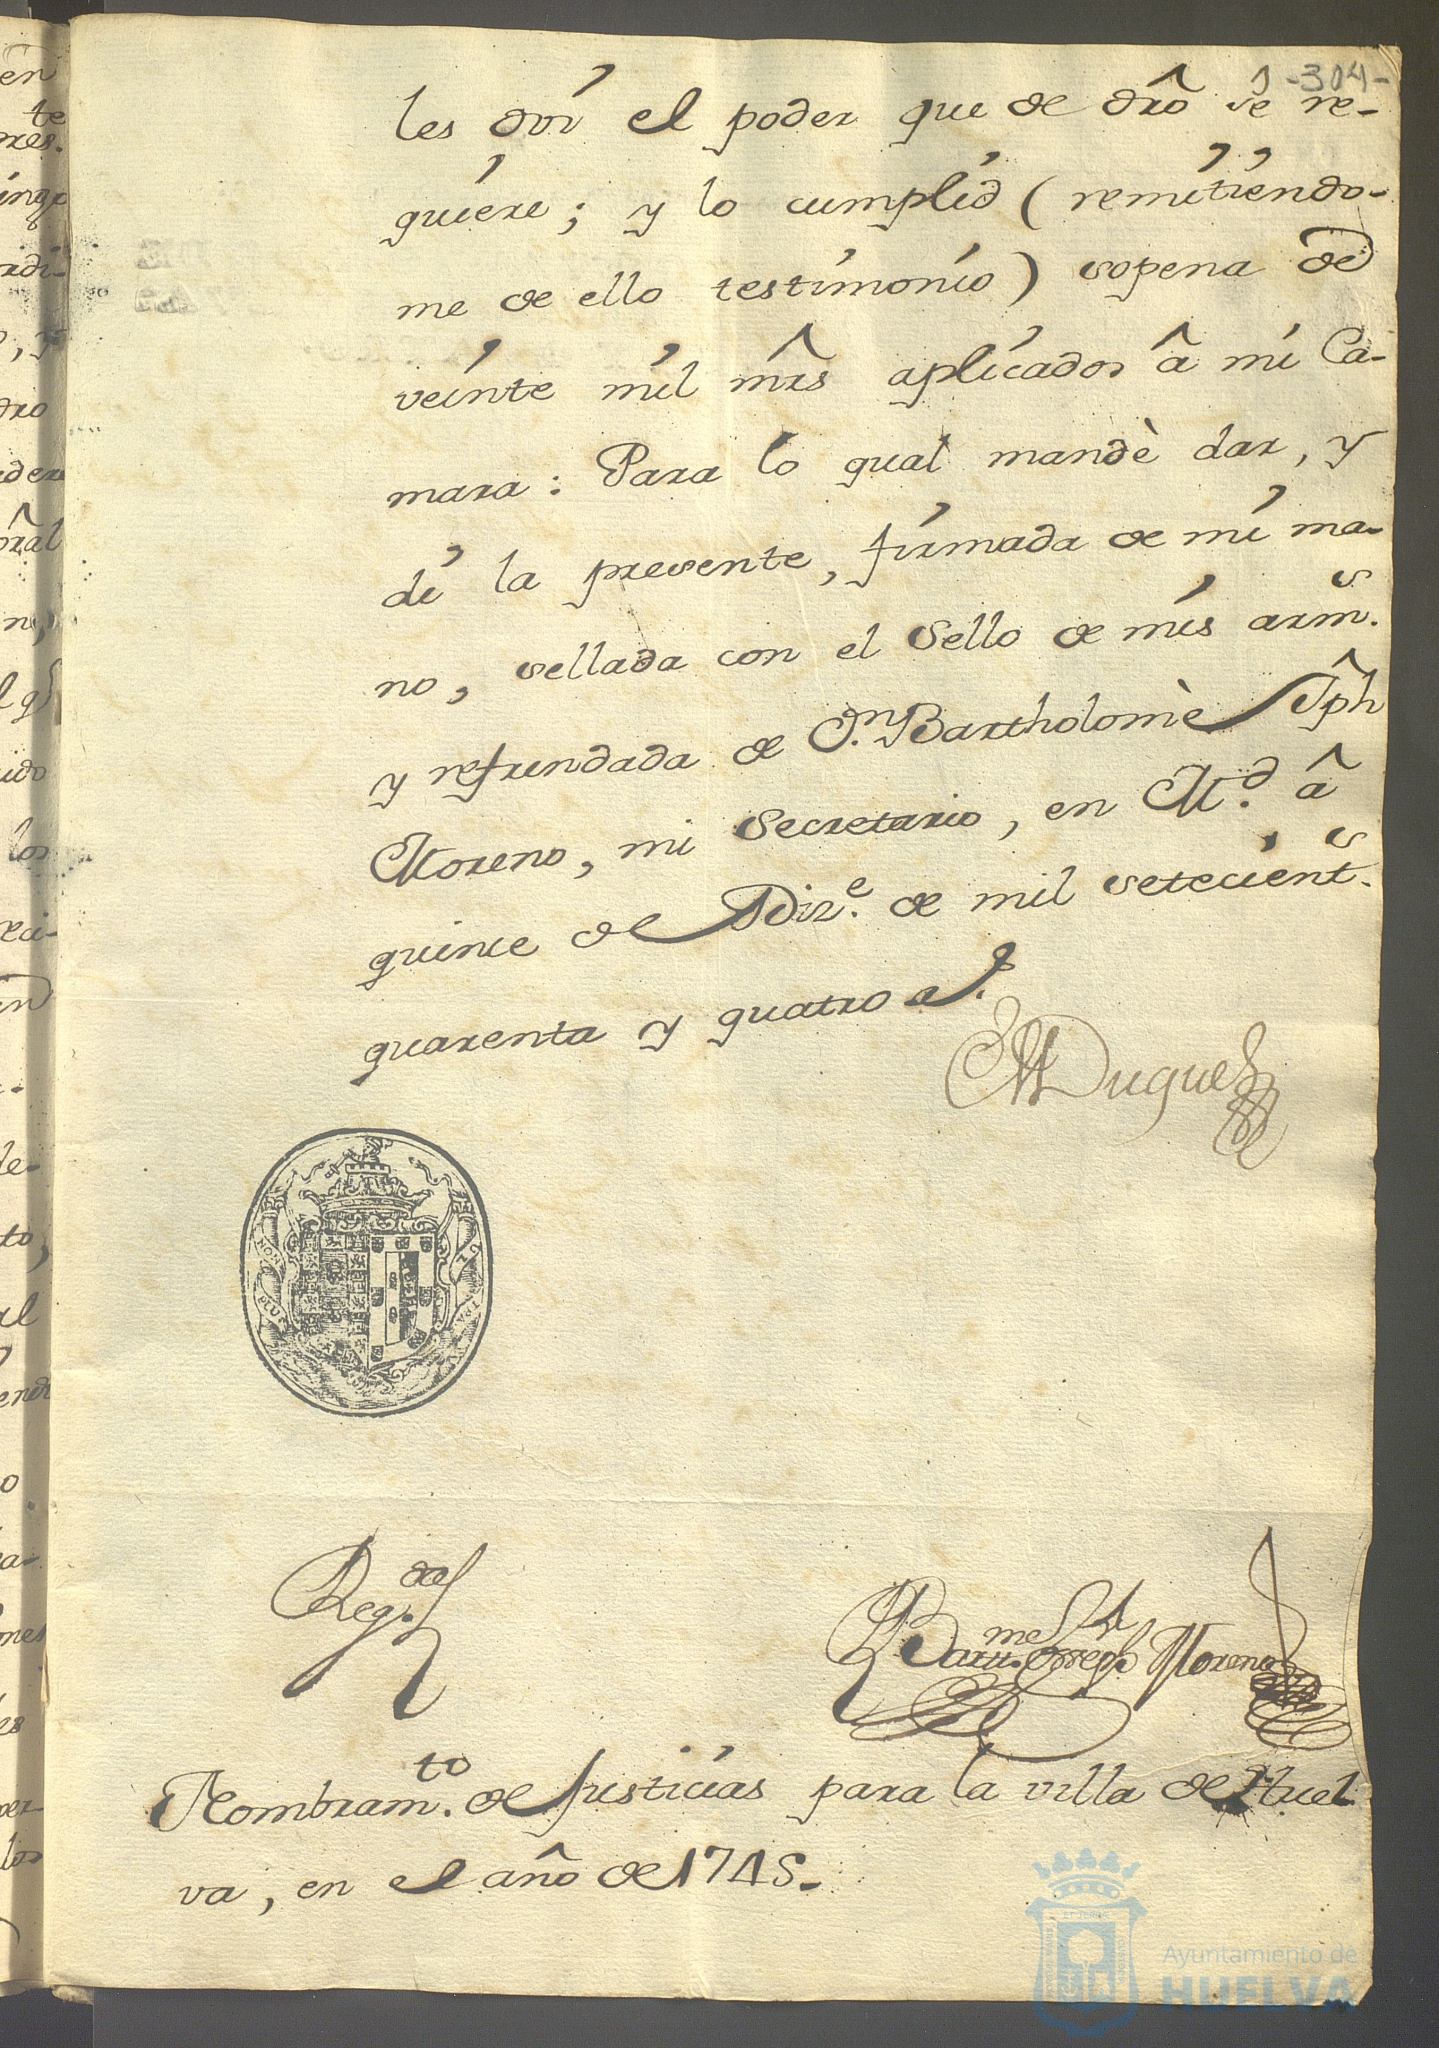 -304-
les doi el poder que de dr̃o se re-
quiere; y lo cumplid (remitiendo-
me de ello testimonio) sopena de
veinte mil mr̃s aplicados â mi Ca-
mara: Para lo qual mandè dar, y
di la presente, firmada de mi ma-
no, sellada con el Sello de mis arm.s
y refrendada de D.n Bartholomè Jph̃
Moreno, mi Secretario, en M.d â
quince de Diz.e de mil setecient.s
quarenta y quatro a.s
El Duque
NON
PLUS
Reg.da
Bart.me Joseph Moreno
Nombram.to de Justicias para la villa de Huel
va, en el año de 1745.
Ayuntamiento de
HUELVA